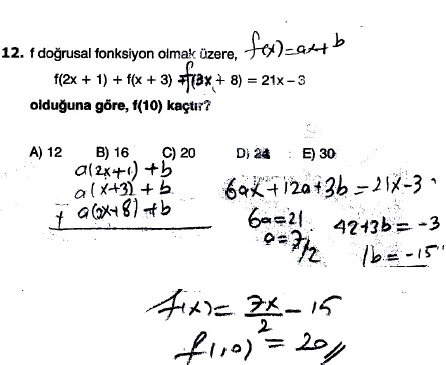 12. f doğrusal fonksiyon olmak üzere, f(x)=ax+b
f(2x + 1) + f(x + 3) + f(3x + 8) = 21x – 3
olduğuna göre, f(10) kaçtır?
A) 12 B) 16 C) 20 D) 24 E) 30
a(2x+1)+b
a(x+3)+b
+ a(3x+8)+b
6ax+12a+3b=21x-3
6a=21
a=7/2
42+3b=-3
b=-15
f(x)= 7x/2 - 15
f(10)=20//